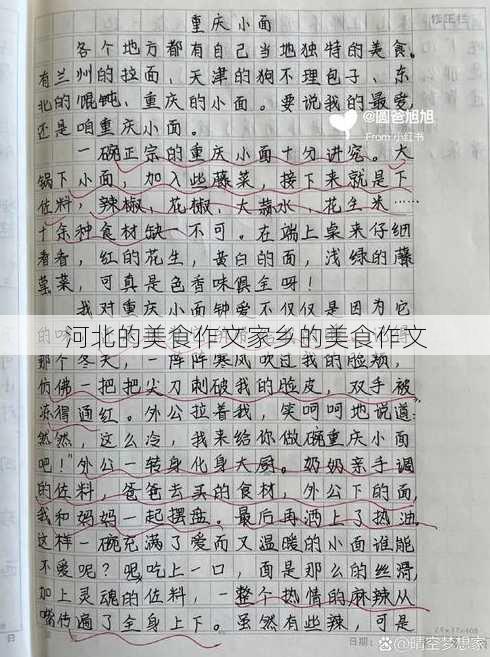 重庆小面
作正栏
各个地方都有自己当地独特的美食。
有兰州的拉面、天津的狗不理包子、东
北的馄饨、重庆的小面。要说我的最爱,
还是咱重庆小面。
@圆爸旭旭
From 小红书
一碗正宗的重庆小面十分讲究。大
锅下小面,加入些藤菜,接下来就是下
佐料,辣椒、花椒、大蒜水、花生米……
十余种食材缺一不可。在端上桌来仔细
看看,红的花生,黄白的面,浅绿的藤
菜,可真是色香味俱全呀!
我对重庆小面钟爱不仅仅是因为它
河北的美食作文家乡的美食作文
那个冬天,一阵阵寒风吹过我的脸颊,
仿佛一把把尖刀刺破我的脸皮,双手被
冻得通红。外公拉着我,笑呵呵地说道:
然然,这么冷,我来给你做碗重庆小面
吧!"外公一转身化身大厨。奶奶亲手调
的佐料,爸爸去买的食材,外公下的面,
我和妈妈一起摆盘。最后再洒上了热油。
这样一碗充满了爱而又温暖的小面谁能
不爱呢?嗯吃上一口,面是那么的丝滑,
加上灵魂的佐料,一整个热情的麻辣从
嘴传遍了全身上下。虽然有些辣,可是
日期:
@晴空梦想家